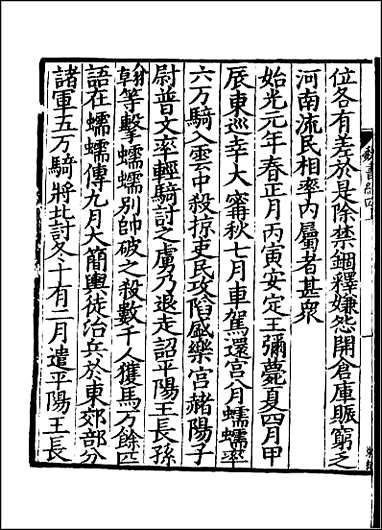 位各有差於是除禁錮釋嫌怨開倉庫賑窮乏
河南流民相率內屬者甚衆
始光元年春正月丙寅安定王彌薨夏四月甲
辰東巡幸大甯秋七月車駕還宮八月蠕蠕率
六万騎入雲中殺掠吏民攻陷盛樂宮赭陽子
尉普文率輕騎討之虜乃退走詔平陽王長孫
翰等擊蠕蠕別帥破之殺數千人獲馬万餘匹
語在蠕蠕傳九月大簡輿徒治兵於東郊部分
諸軍五万騎將北討冬十有二月遣平陽王長